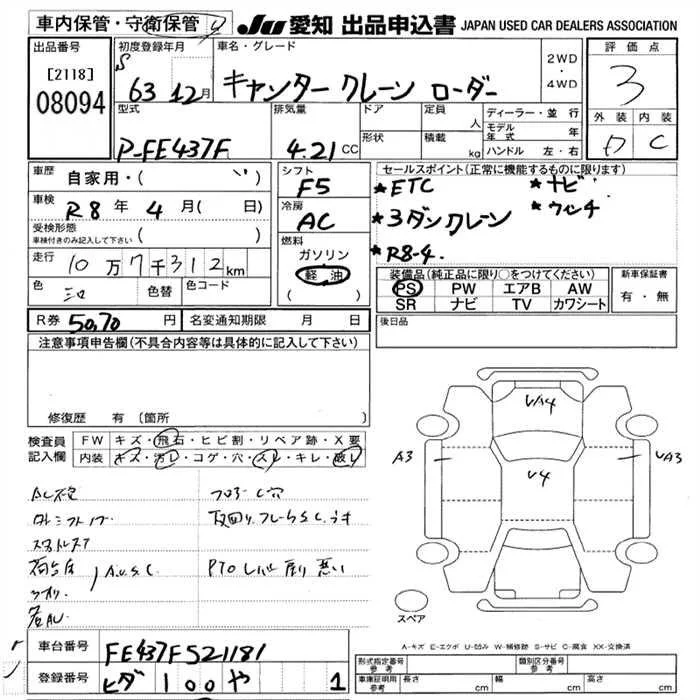 車内保管・守衛保管
JU 愛知 出品申込書 JAPAN USED CAR DEALERS ASSOCIATION
出品番号
[2118]
08094
初度登録年月
S 63 12月
車名・グレード
キャンター クレーン ローダー
2WD
・
4WD
評価点
3
外装 内装
D C
型式
P-FE437F
排気量
4.21 CC
ドア
形状
定員
人
積載
kg
ディーラー・並行
モデル年式 年
ハンドル 左・右
車歴
自家用・( )
車検
R8年 4月( 日)
受検形態
車検付きのみ記入して下さい ( )
走行
10万7千312km
色
色替
色コード
シフト
F5
冷房
AC
燃料
ガソリン
軽油
( )
セールスポイント(正常に機能するものに限ります)
★ETC ★ナビ
★3ダンクレーン ★ウィンチ
★R8-4.
装備品(純正品に限り○をつけてください)
PS PW エアB AW
SR ナビ TV カワシート
新車保証書
有・無
R券 50,70 円
名変通知期限 月 日
後日品
注意事項申告欄(不具合内容等は具体的に記入して下さい)
修復歴 有 (箇所 )
検査員記入欄
FW キズ・飛石・ヒビ割・リペア跡・X要
内装 キズ・汚し・コゲ・穴・スレ・キレ・破レ
PTOレバー戻り悪い
VA4
A3
V4
VA3
スペア
A-キズ E-エクボ U-凹み W-補修跡 S-サビ C-腐食 XX-交換済
車台番号
FE437F521181
登録番号
ヒダ 100 や 1
形式指定番号 参考
類別区分番号 参考
車庫証明用 参考
長さ cm
幅 cm
高さ cm